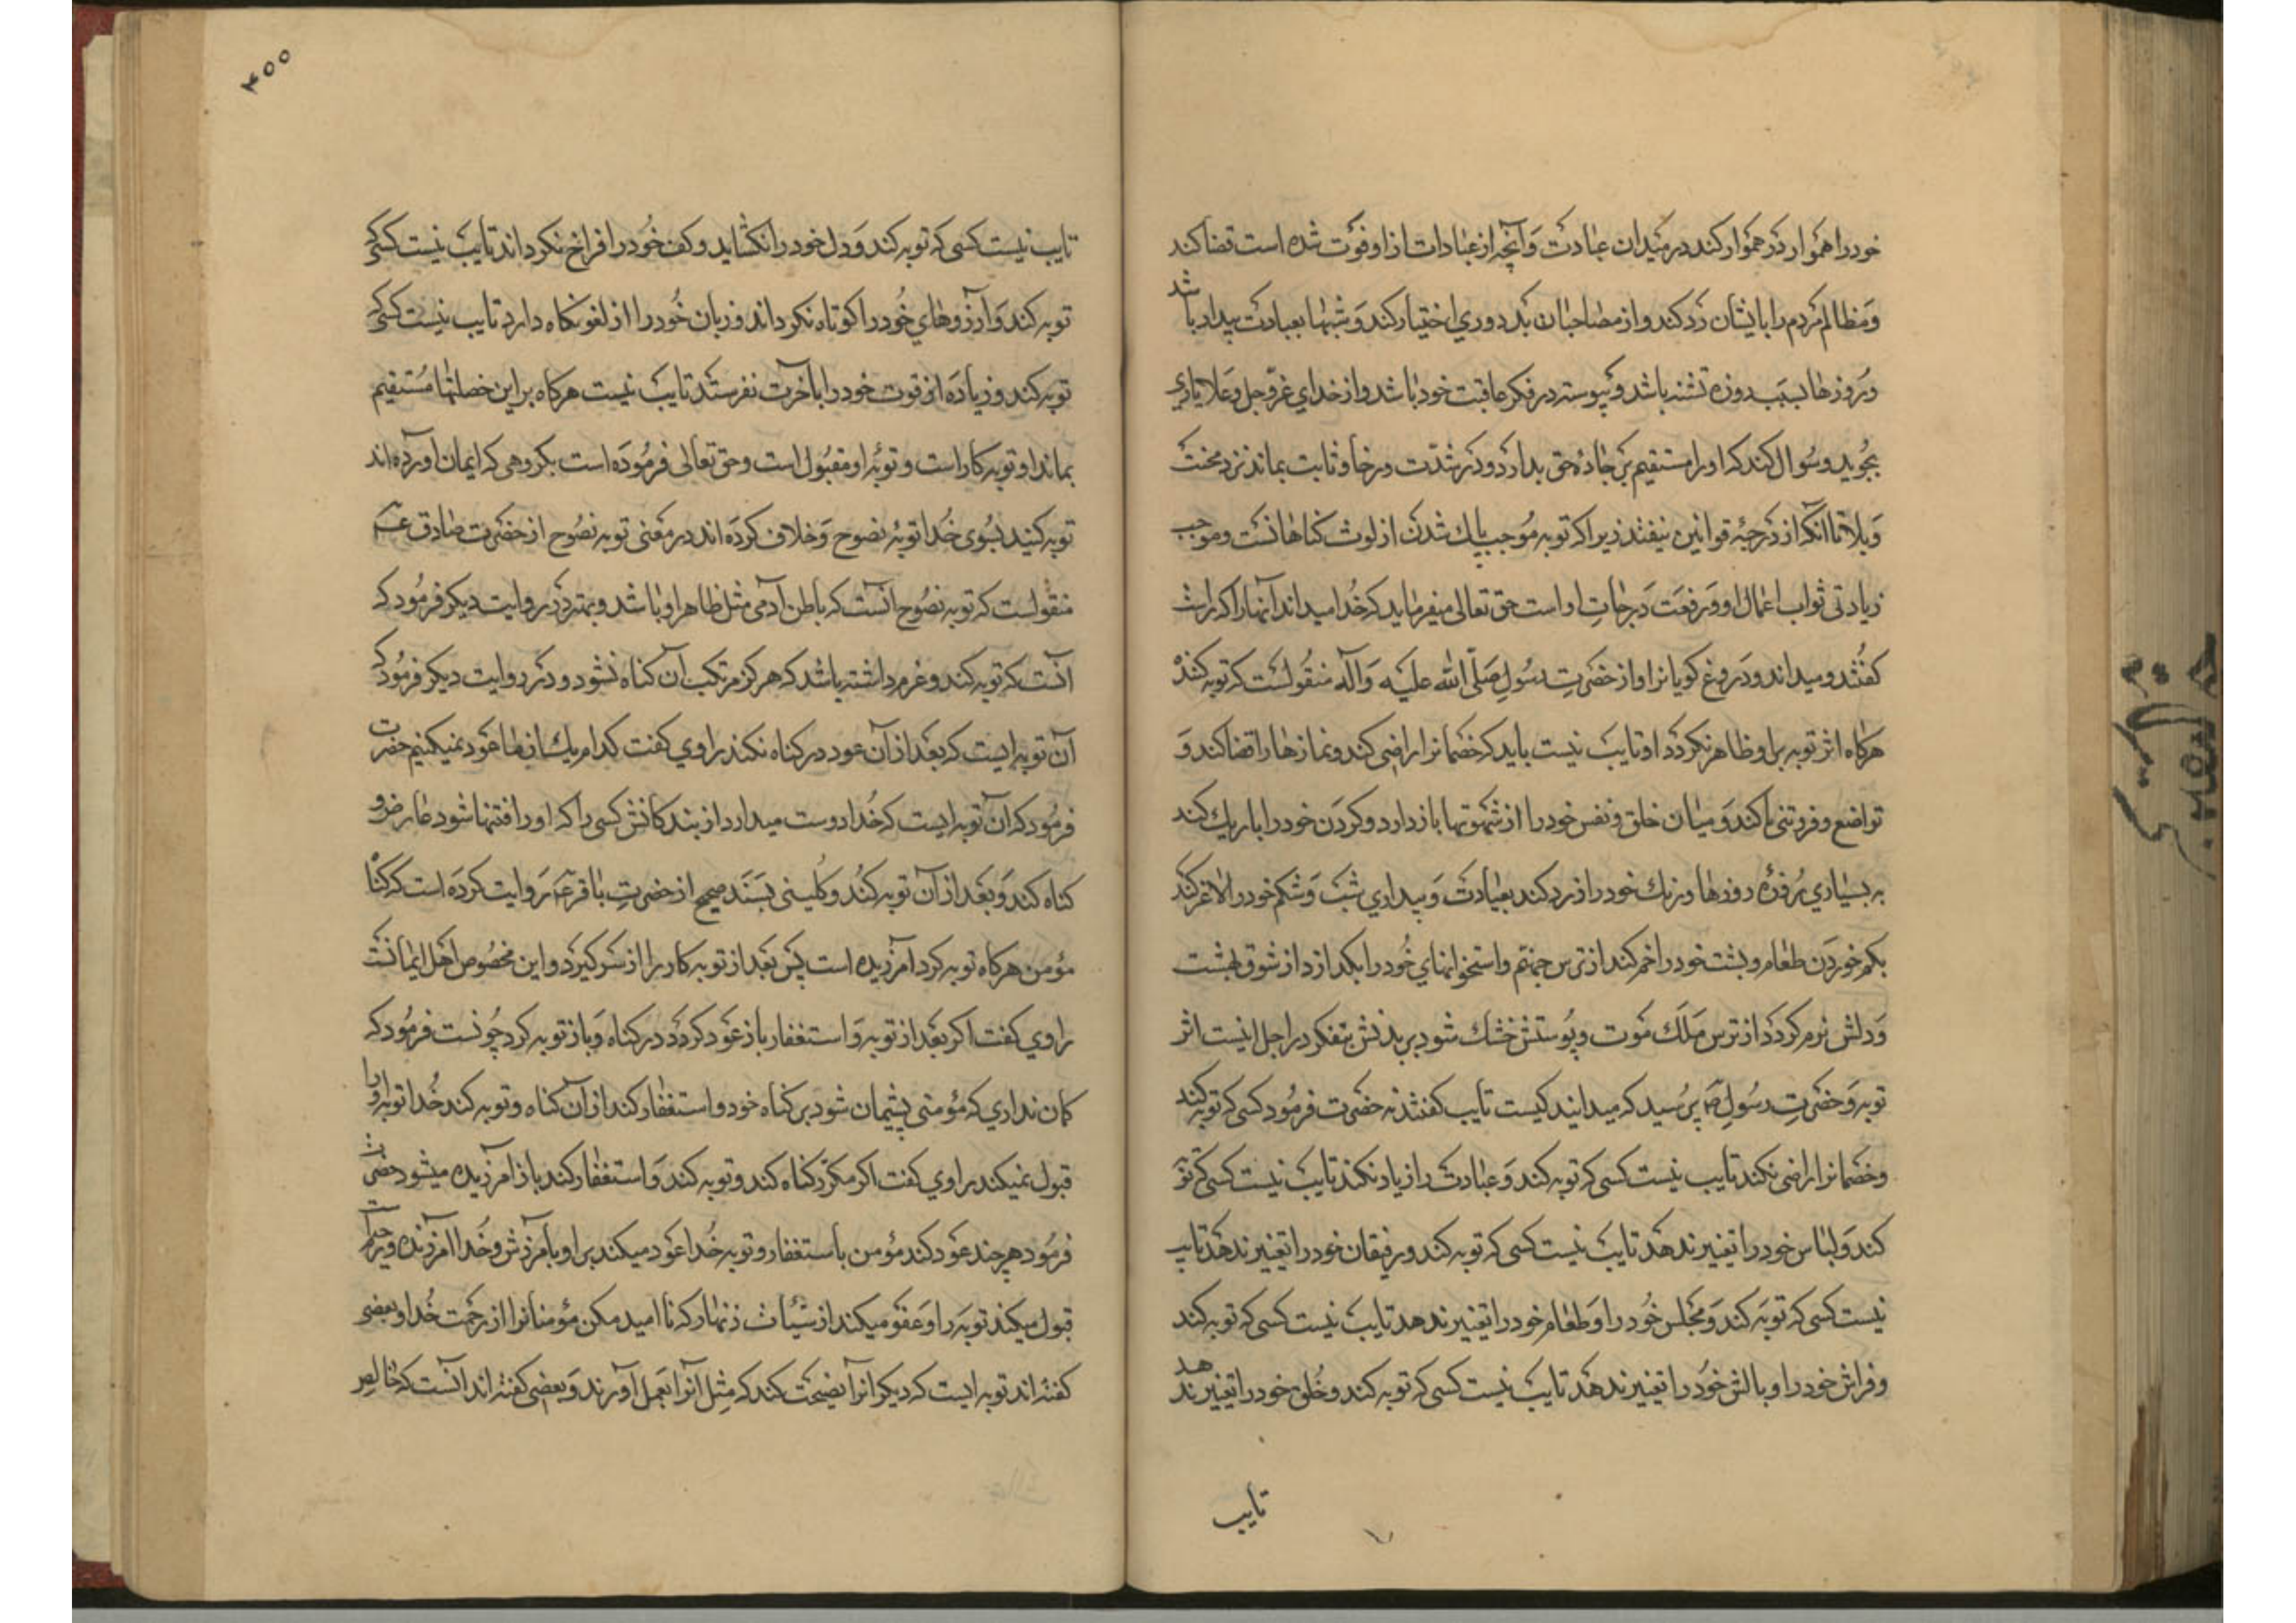 خود را هموار در هموار کند در میدان عبادت و آنچه از عبادات از او فوت شده است قضا کند
و مظالم مردم را بایشان رد کند و از مصاحبان بد دوری اختیار کند و شبها بعبادت بیدار باشد
و روزها بسبب روزه تشنه باشد و پیوسته در فکر عاقبت خود باشد و از خدای عزّ و جل و علا یاری
بجوید و سؤال کند که او را مستقیم بر جادهٔ حق بدارد و در شدّت و رخا و ثابت بماند نزد محنت
و بلا تا آنکه از درجهٔ توابین نیفتد زیرا که توبه موجب پاک شدن از لوث گناهانست و موجب
زیادتی ثواب اعمال او و رفعت درجاتِ او است حق تعالی میفرماید که خدا میداند آنها را که راست
کفتند و میداند دروغ کویانرا و از حضرتِ رسولِ صَلّی اللّه علیه و آله منقولست که توبه کننده
هرکاه اثر توبه بر او ظاهر نکردد او تایب نیست باید که خصمانرا راضی کند و نمازها را قضا کند و
تواضع و فروتنی کند و میان خلق و نفس خود را از شهوتها باز دارد و کردن خود را باریک کند
به بسیاری روزهٔ روزها و رنک خود را زرد کند بعبادت و بیداری شب و شکم خود را لاغر کند
بکم خوردن طعام و پشت خود را خم کند از ترس جهنّم و استخوانهای خود را بکدازد از شوق بهشت
و دلش نرم کردد از ترس مَلَک موت و پوستش خشک شود بر بدنش بتفکر در اجل اینست اثر
توبه و حضرتِ رسولِ ص پرسید که میدانید کیست تایب کفتند نه حضرت فرمود کسی که توبه کند
و خصمانرا راضی نکند تایب نیست کسی که توبه کند و عبادت را زیاد نکند تایب نیست کسی که توبه
کند و لباس خود را تغییر ندهد تایب نیست کسی که توبه کند و رفیقان خود را تغییر ندهد تایب
نیست کسی که توبه کند و مجلس خود را و طعام خود را تغییر ندهد تایب نیست کسی که توبه کند
و فراش خود را و بالش خود را تغییر ندهد تایب نیست کسی که توبه کند و خُلق خود را تغییر ندهد
تایب
۴۰۰
تایب نیست کسی که توبه کند و دل خود را نکشاید و کف خود را فراخ نکرداند تایب نیست کسی که
توبه کند و آرزوهای خود را کوتاه نکرداند و زبان خود را از لغو نکاه دارد تایب نیست کسی که
توبه کند و زیاده از قوت خود را بآخرت نفرستد تایب نیست هرکاه بر این خصلتها مستقیم
بماند او توبه کار است و توبهٔ او مقبول است و حق تعالی فرموده است بکروهی که ایمان آورده‌اند
توبه کنید بسوی خدا توبهٔ نصوح و خلاف کرده‌اند در معنی توبهٔ نصوح از حضرت صادق ع
منقولست که توبه نصوح آنست که باطن آدمی مثل ظاهر او باشد و بهتر و در روایت دیکر فرمود که
آنست که توبه کند و عزم داشته باشد که هرکز مرتکب آن کناه نشود و در روایت دیکر فرمود که
آن توبه ایست که بعد از آن عود در کناه نکند راوی کفت کدام یک از ما عود نمیکنیم حضرت
فرمود که آن توبه ایست که خدا دوست میدارد از بندکانش کسی را که او را فتنها شود عارض و
کناه کند و بعد از آن توبه کند و کلینی بسند صحیح از حضرتِ باقر ع روایت کرده است که کناه
مؤمن هرکاه توبه کرد آمرزیده است پس بعد از توبه کار را از سر کیرد و این مخصوص اهل ایمانست
راوی کفت اکر بعد از توبه و استغفار باز عود کردد در کناه و باز توبه کرد چونست فرمود که
کمان نداری که مؤمنی پشیمان شود بر کناه خود و استغفار کند از آن کناه و توبه کند خدا توبهٔ او را
قبول نمیکند راوی کفت اکر مکرّر کناه کند و توبه کند و استغفار کند باز آمرزیده میشود حضرت
فرمود هر چند عود کند مؤمن باستغفار و توبه خدا عود میکند بر او بآمرزش و خدا آمرزنده و رحیم است
قبول میکند توبه را و عفو میکند از سیّئات زنهار که نا امید مکن مؤمنانرا از رحمت خدا و بعضی
کفته‌اند توبه ایست که دیکرانرا نصیحت کند که مثل آنرا بعمل آورند و بعضی کفته‌اند آنست که خالص